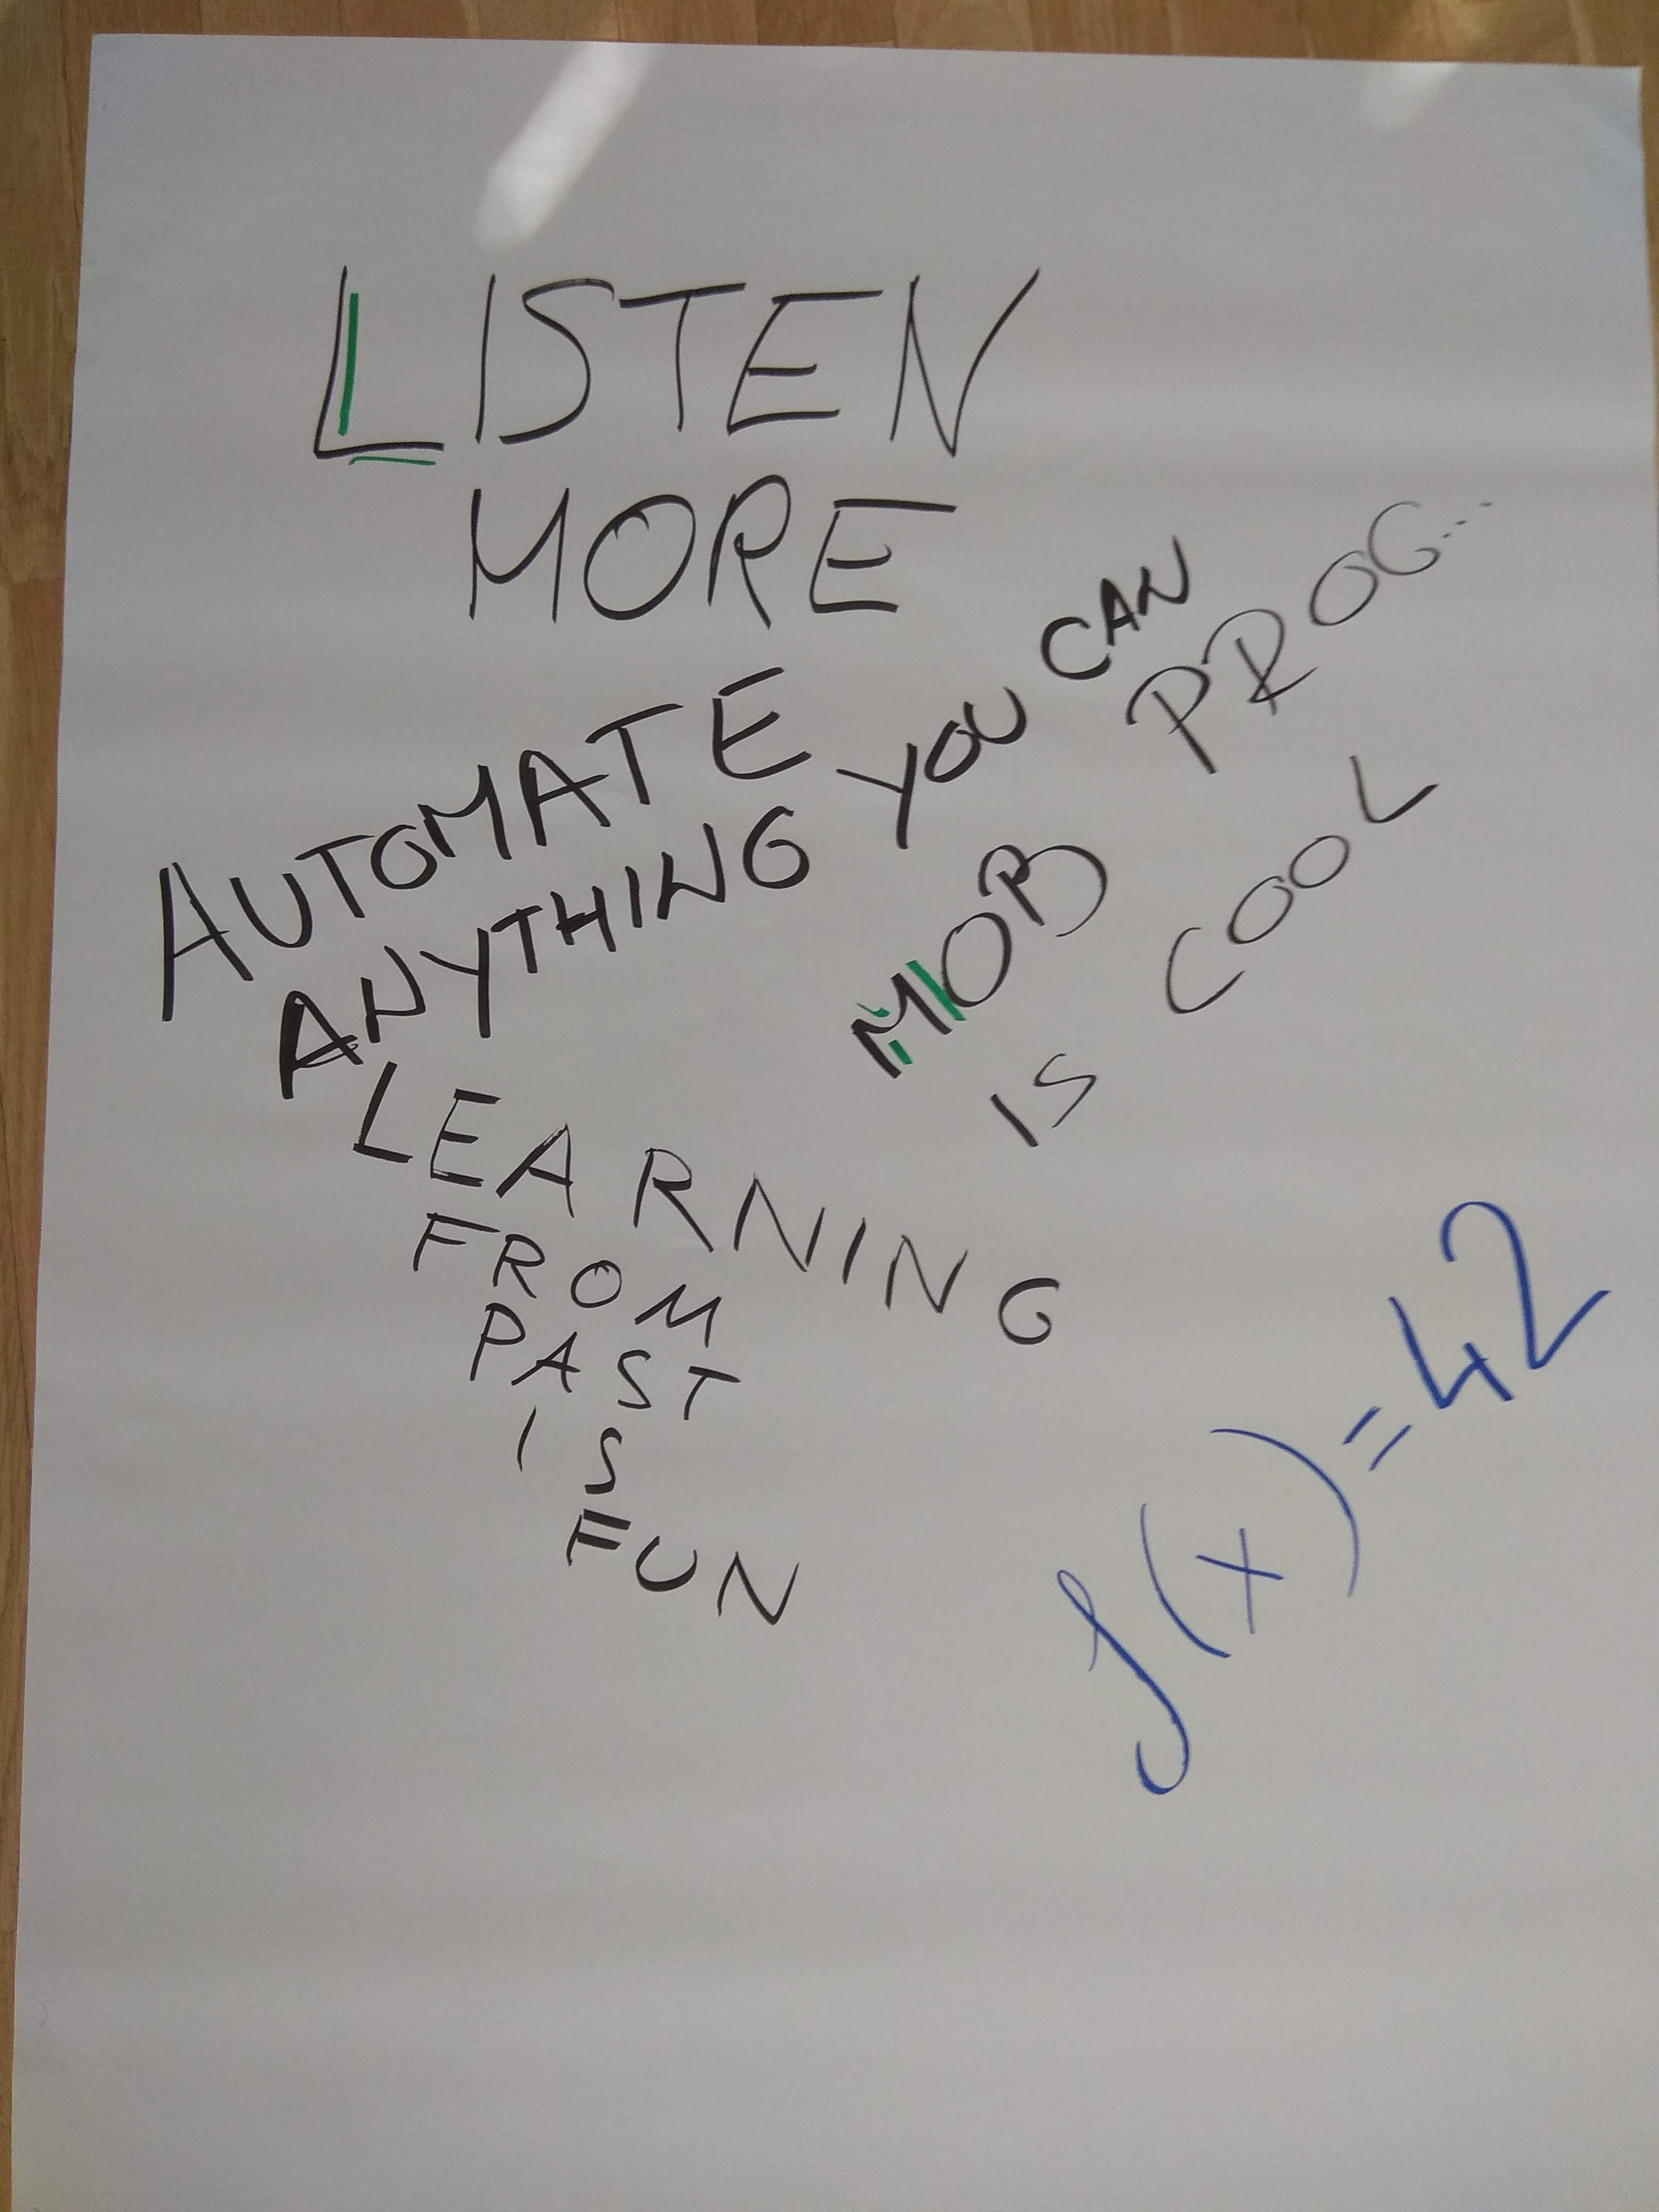 LISTEN
MORE
AUTOMATE
ANYTHING YOU CAN
MOB PROG...
IS COOL
LEARNING
FROM
PAST
IS
FUN
f(x)=42